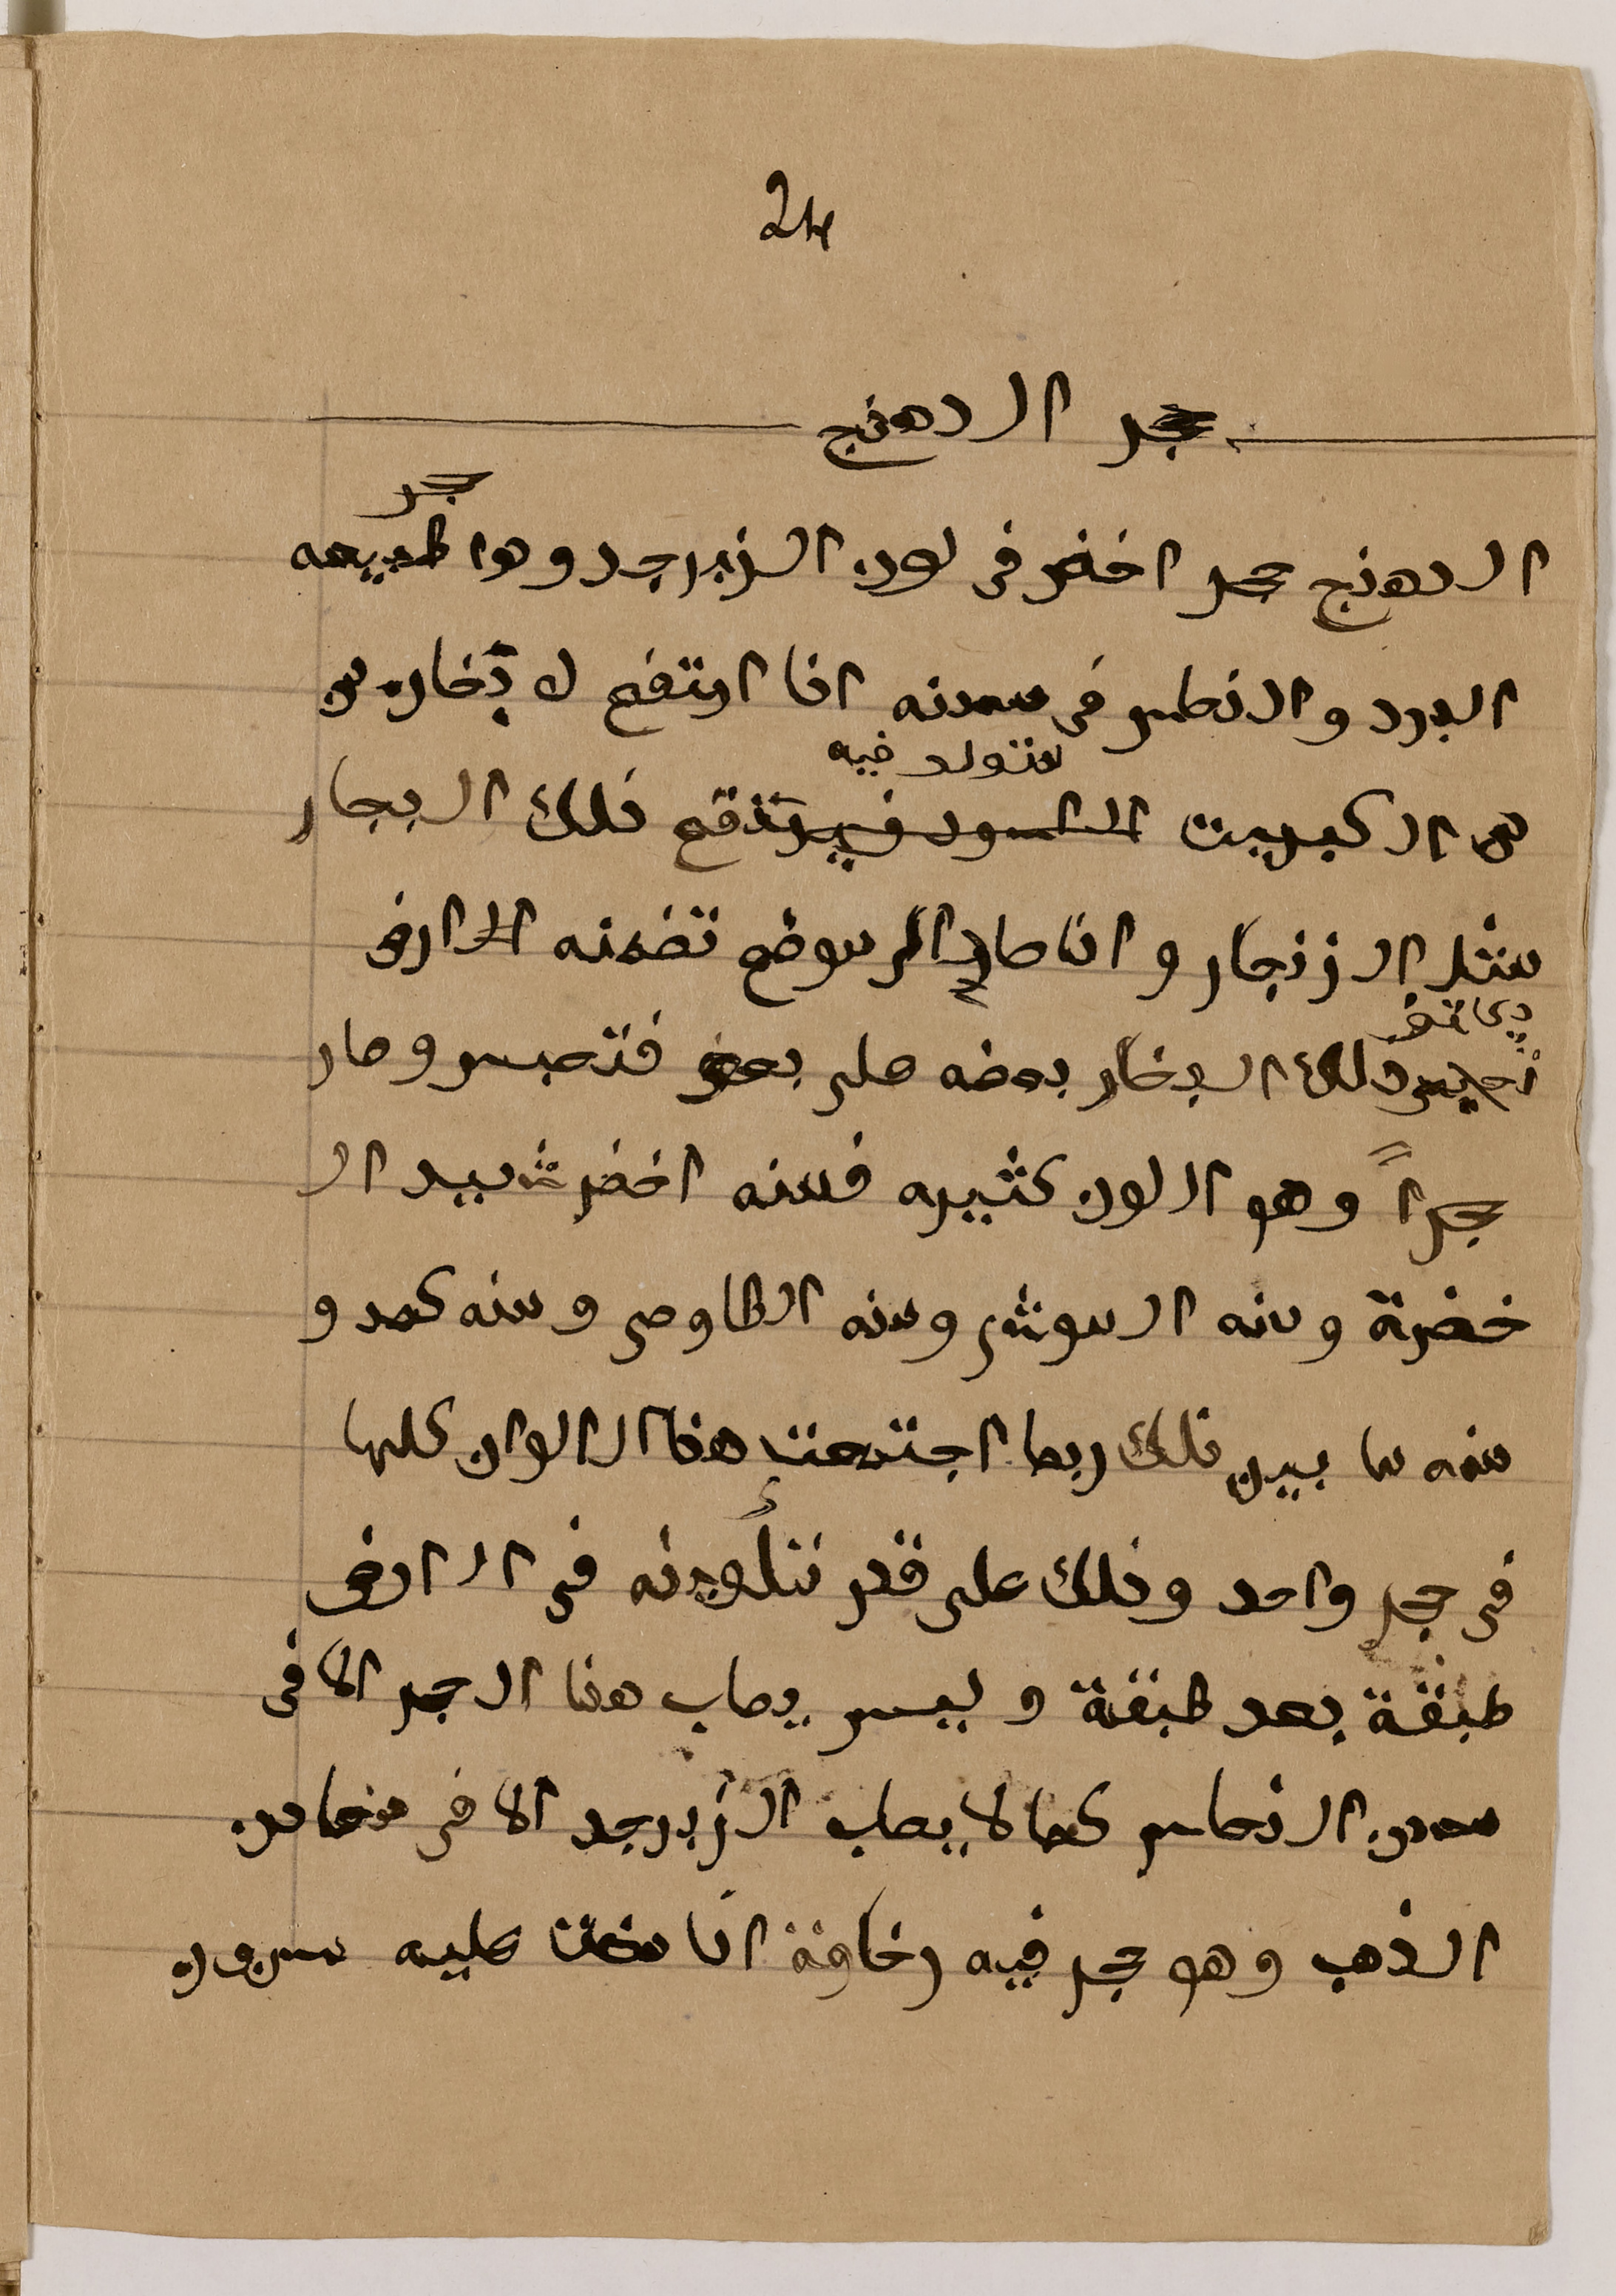 24
حجر الدهنج
الدهنج حجر اخضر فى لون الزبرجد وهو حجر طبيعه
البرد والنحاس فى معدنه اذا ارتفع له بخار من
من الكبريت المتولد فيه فيرتفع ذلك البخار
مثل الزنجار واذا صار الى موضع تضمنه الارض
يتكاثف ذلك البخار بعضه على بعض فتحبس وصار
حجراً وهو الوان كثيره فمنه اخضر شديد ال
خضرة ومنه الموشى ومنه الطاوسى ومنه كمد و
منه ما بين ذلك ربما اجتمعت هذا الالوان كلها
فى حجر واحد وذلك على قدر تكونه فى الارض
طبقة بعد طبقة وليس يصاب هذا الحجر الا فى
معدن النحاس كما لا يصاب الزبرجد الا فى معادن
الذهب وهو حجر فيه رخاوة اذا عليه